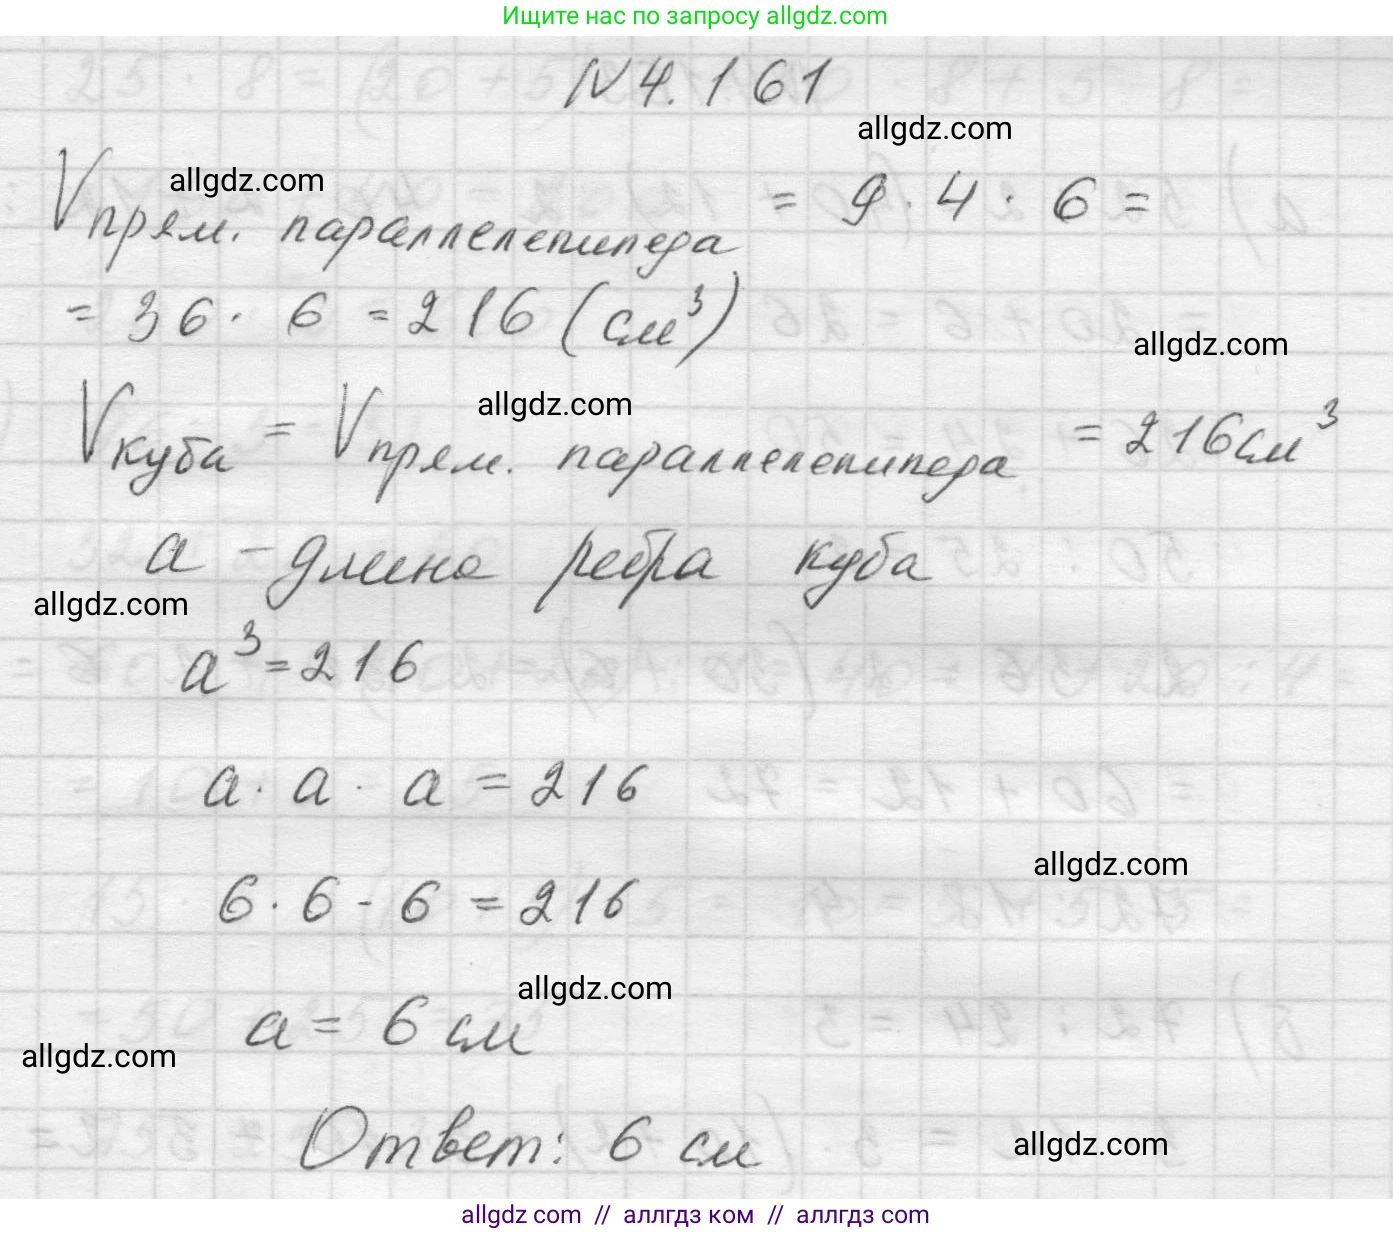 Ищите нас по запросу allgdz.com
N 4.161
allgdz.com
allgdz.com
Vпрям. параллелепипеда = 9 · 4 · 6 =
= 36 · 6 = 216 (см³)
allgdz.com
allgdz.com
Vкуба = Vпрям. параллелепипеда = 216 см³
a – длина ребра куба
allgdz.com
a³ = 216
a · a · a = 216
allgdz.com
6 · 6 · 6 = 216
allgdz.com
a = 6 см
allgdz.com
Ответ: 6 см
allgdz.com
allgdz com // аллгдз ком // аллгдз com